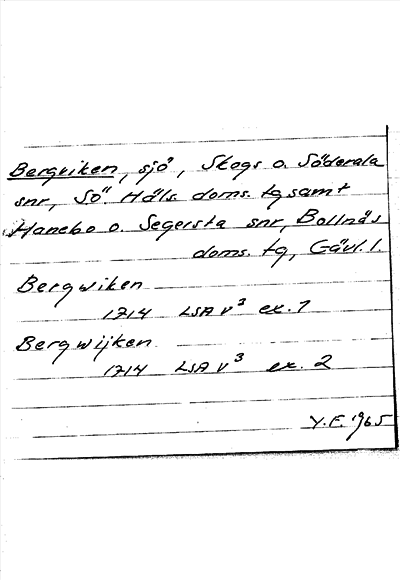 Bergviken, sjö, Skogs o. Söderala
snr, Sö. Häls. doms. tg samt
Hanebo o. Segersta snr, Bollnäs
doms. tg, Gävl. l.
Bergwiken
1714 LSA V³ ex. 1
Bergwijken
1714 LSA V³ ex. 2
Y.F. 1965